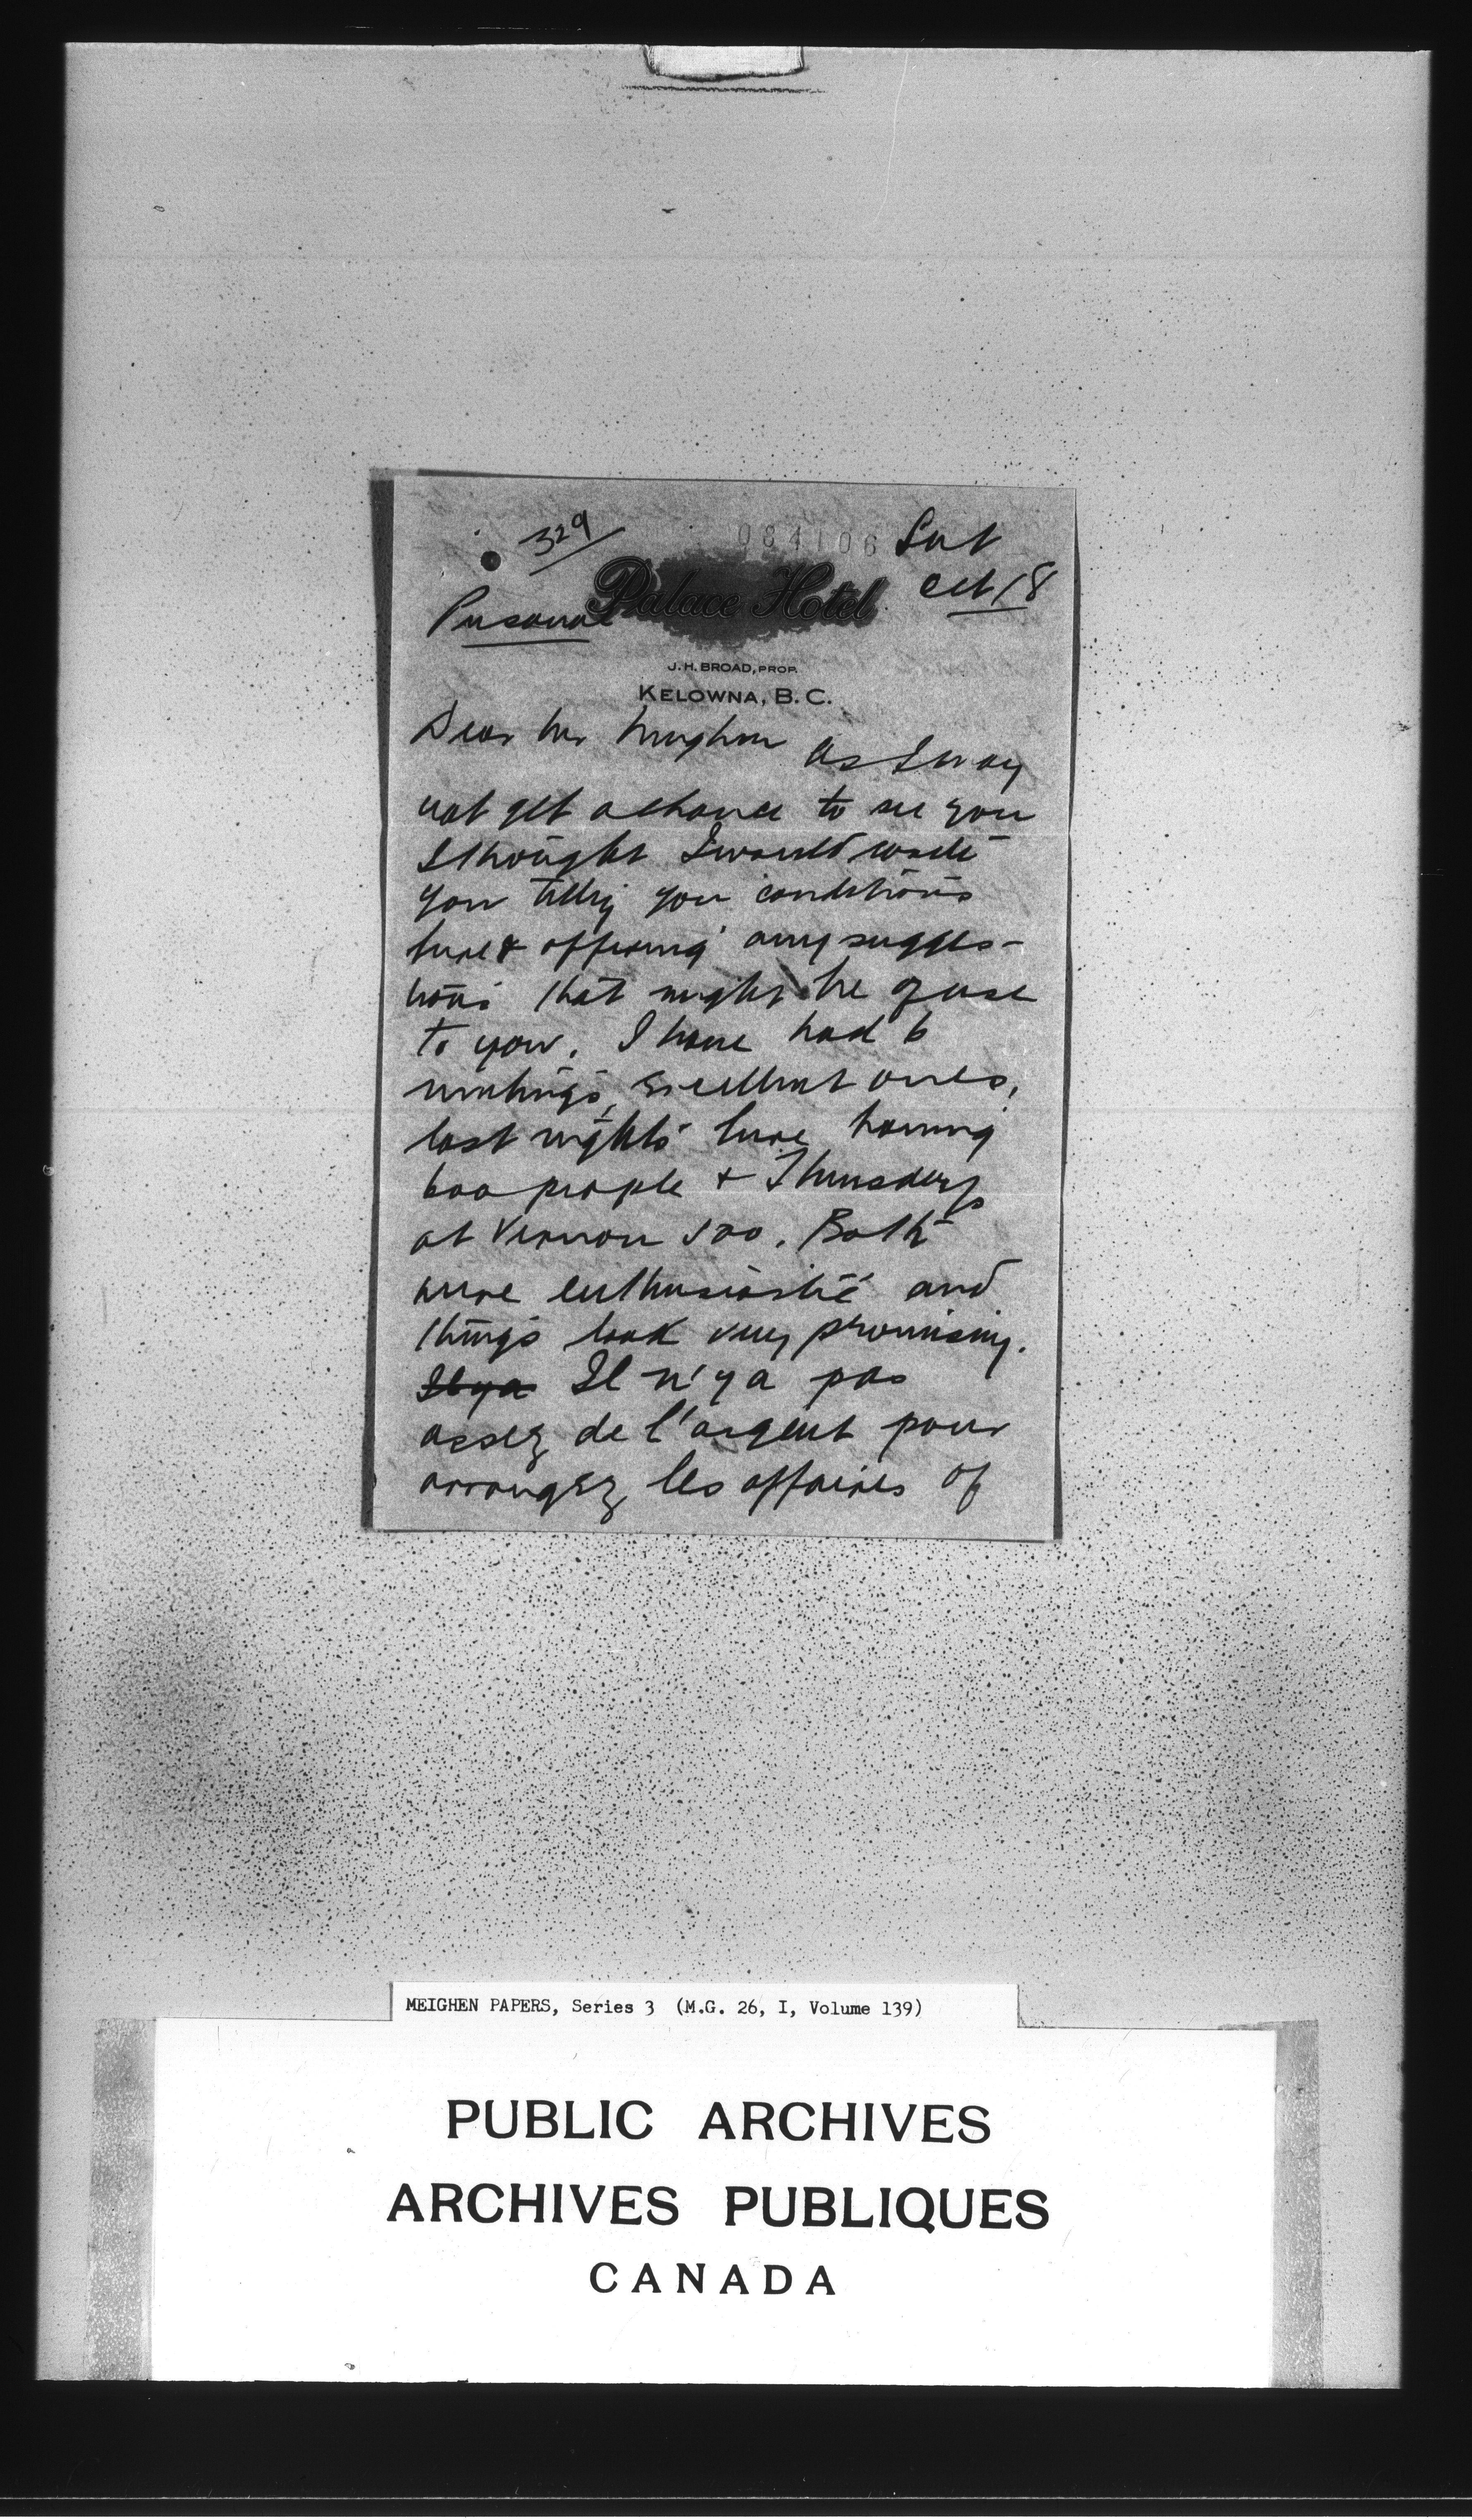 329
084106 Sat
Oct 18
Personal
Palace Hotel
J. H. BROAD, PROP.
KELOWNA, B. C.
Dear Mr Meighen As I may
not get a chance to see you
I thought I would write
you telling you conditions
here & offering any sugges-
tions that might be of use
to you. I have had 6
meetings, excellent ones,
last nights here having
600 people & Thursdays
at Vernon 500. Both
were enthusiastic and
things look very promising.
Il ya Il n'y a pas
assez de l'argent pour
arrangez les affaires of
MEIGHEN PAPERS, Series 3 (M.G. 26, I, Volume 139)
PUBLIC ARCHIVES
ARCHIVES PUBLIQUES
CANADA